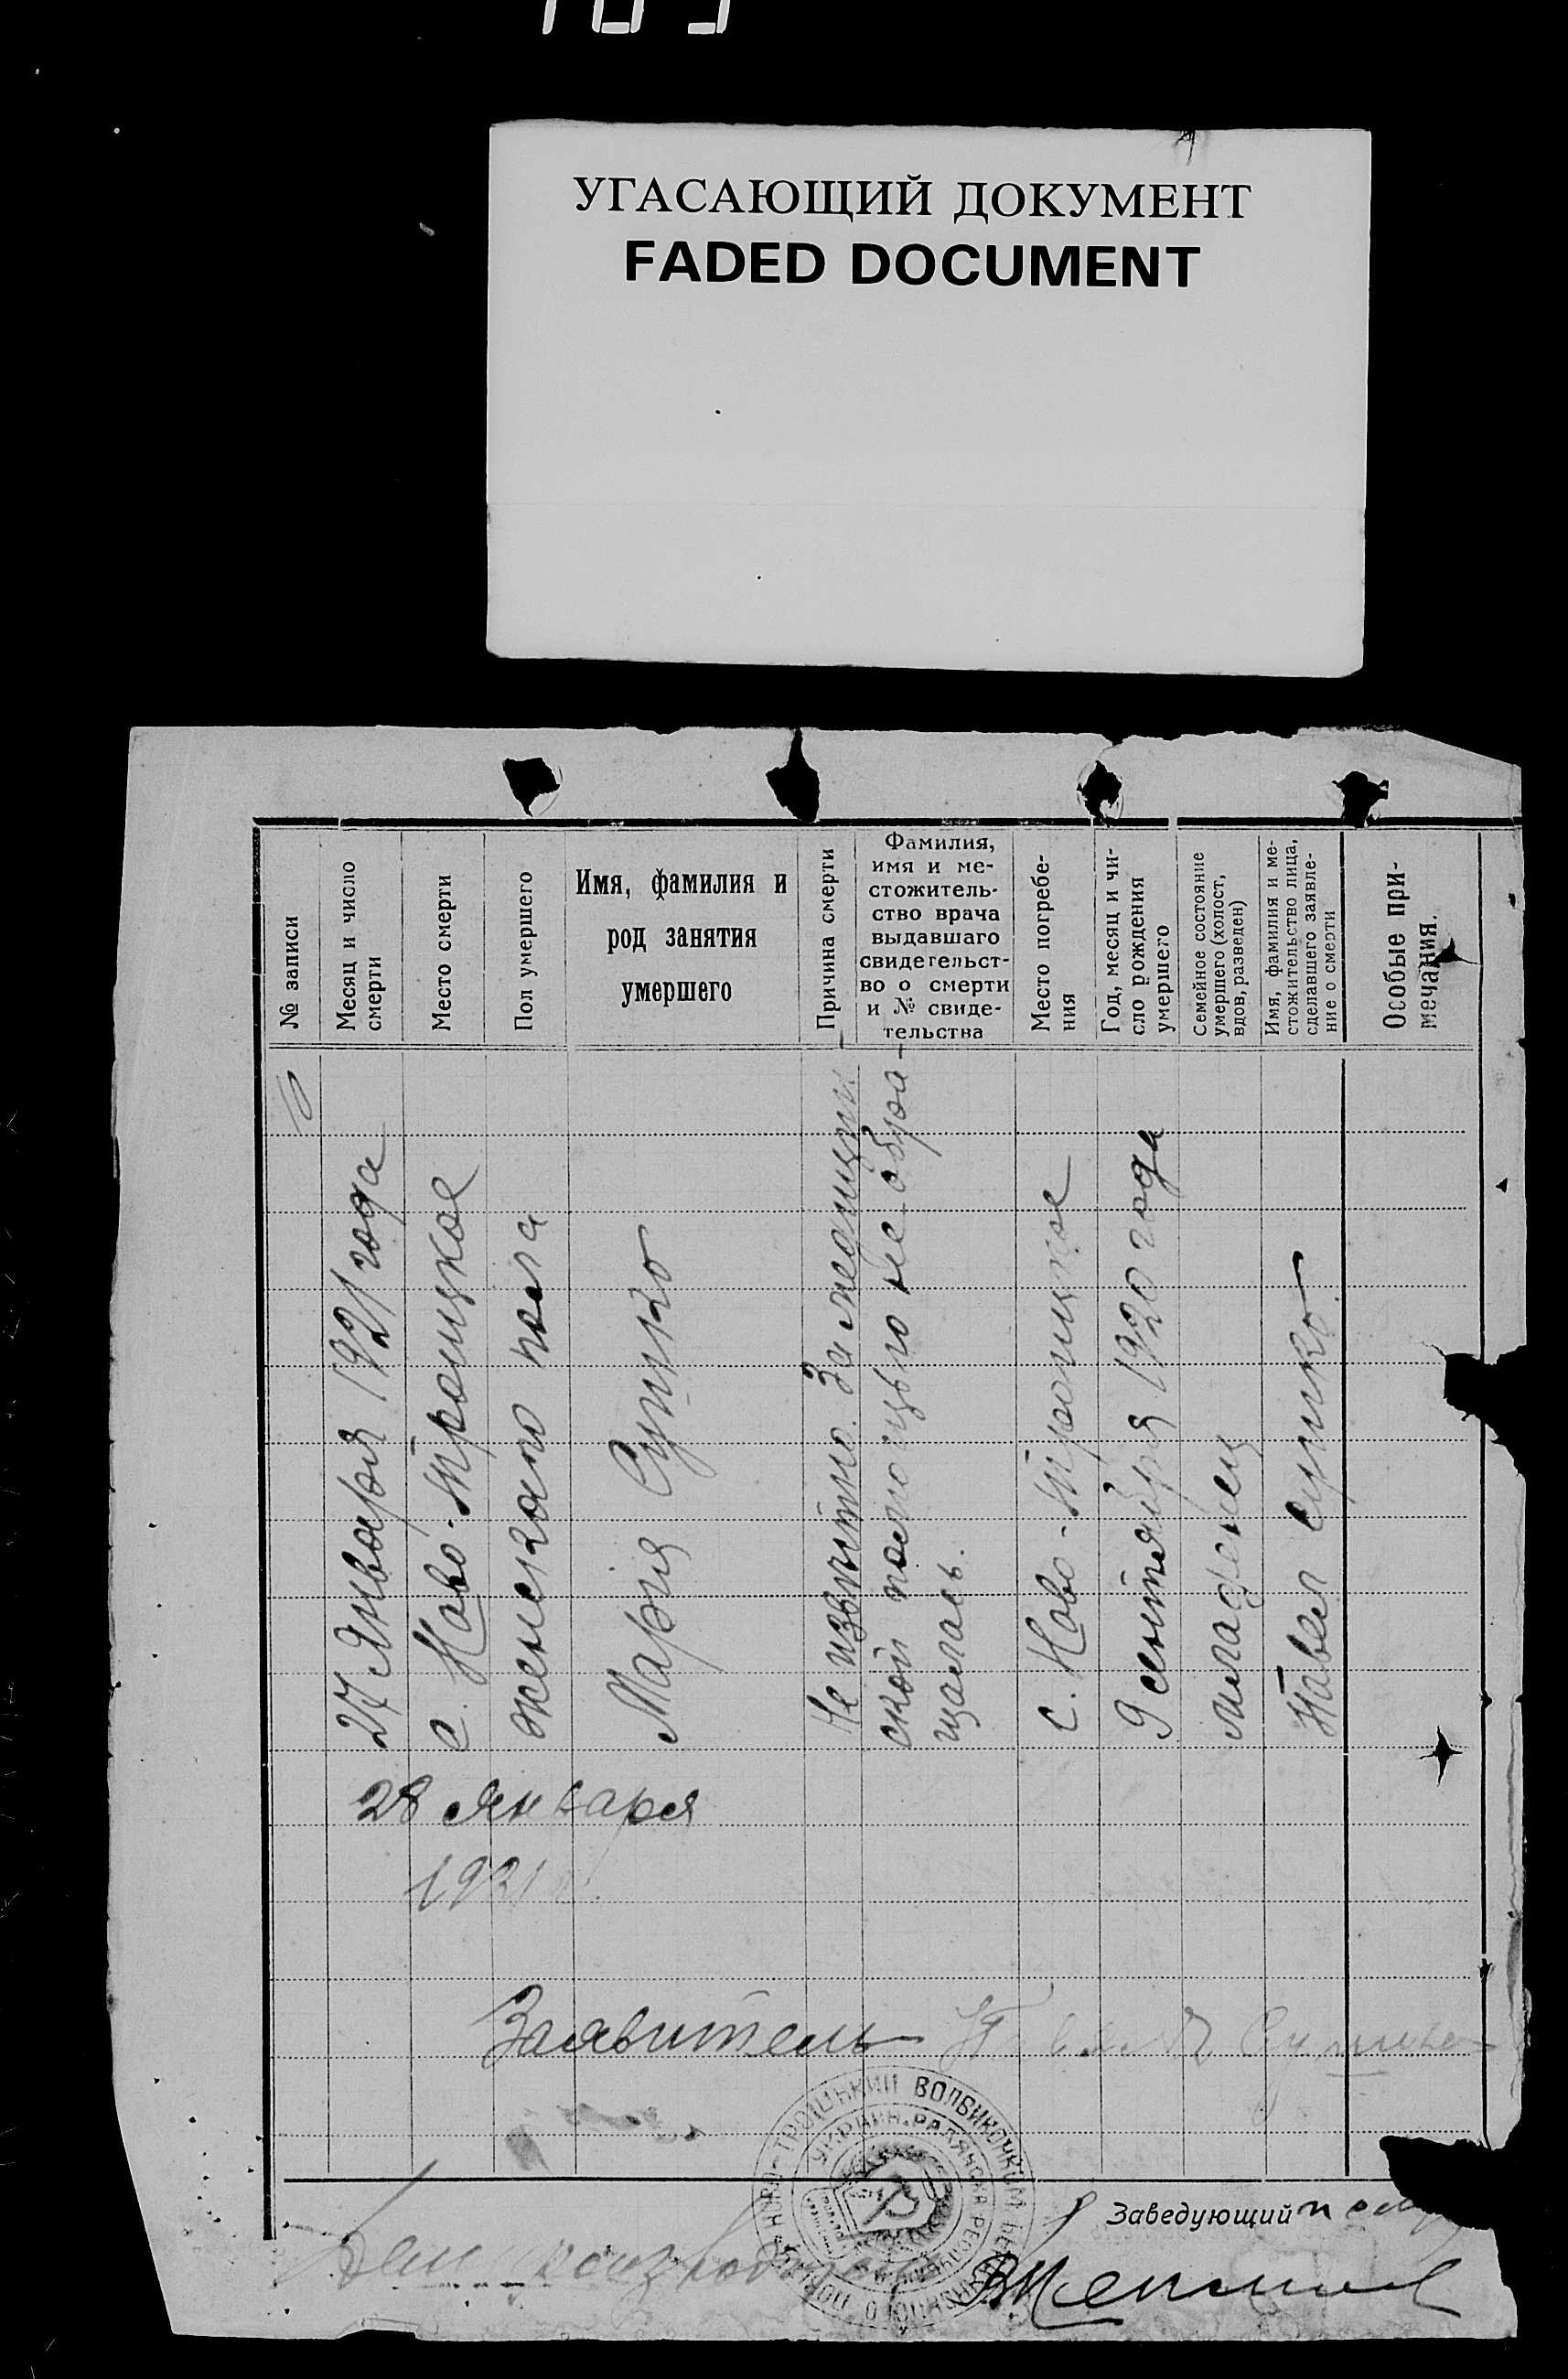 УГАСАЮЩИЙ ДОКУМЕНТ
FADED DOCUMENT
№ записи
Месяц и число
смерти
Место смерти
Пол умершего
Имя, фамилия и
род занятия
умершего
Причина смерти
Фамилия,
имя и ме-
стожитель-
ство врача
выдавшаго
свидетельст-
во о смерти
и № свиде-
тельства
Место погребе-
ния
Год, месяц и чи-
сло рождения
умершего
Семейное состояние
умершего (холост,
вдов, разведен)
Имя, фамилия и ме-
стожительство лица,
сделавшего заявле-
ние о смерти
Особые при-
мечания.
27 Января 1921 года
с. Ново-Троицкое
женскаго пола
Марія Супко
Не извѣстно. За медицин-
ской помощью не обра-
щалась.
с. Ново-Троицкое
9 сентября 1920 года
младенец
Павел Супко
28 января
1921
Заявитель
НОВО-ТРОЇЦЬКИЙ ВОЛВИКОНКОМ
УКРАИН. РАДЯНСКА
Заведующий